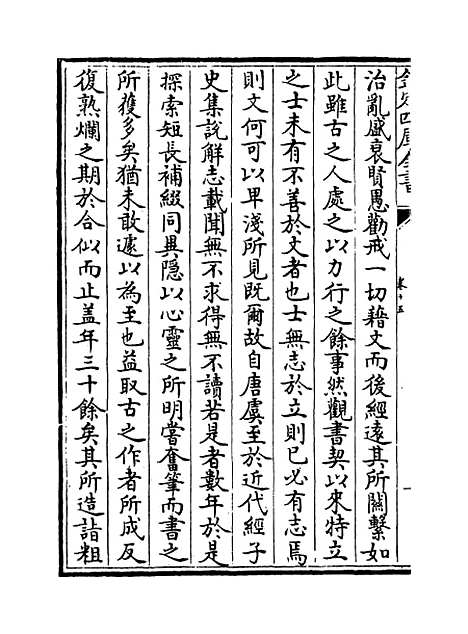 欽定四庫全書
卷十五
治亂盛衰賢愚勸戒一切藉文而後經遠其所關繫如
此雖古之人處之以力行之餘事然觀書契以來特立
之士未有不善於文者也士無志於立則已必有志焉
則文何可以卑淺所見既爾故自唐虞至於近代經子
史集說解志載聞無不求得無不讀若是者數年於是
探索短長補綴同異隱以心靈之所明嘗奮筆而書之
所獲多矣猶未敢遽以為至也益取古之作者所成反
復熟爛之期於合似而止盖年三十餘矣其所造詣粗